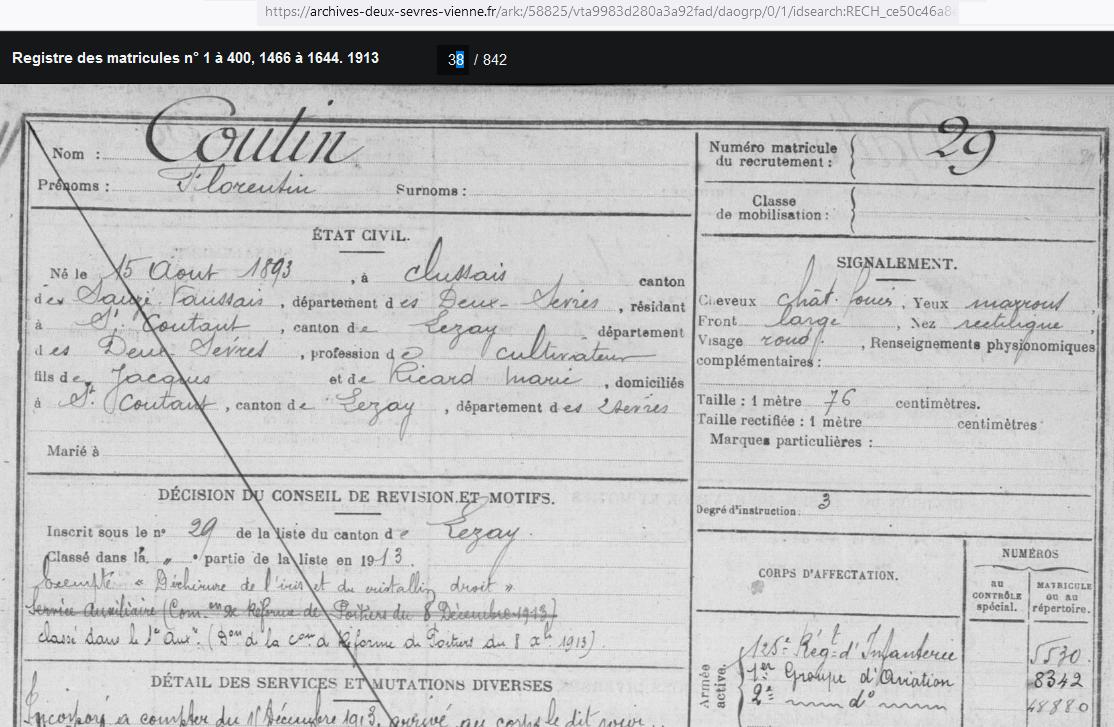 https://archives-deux-sevres-vienne.fr/ark:/58825/vta9983d280a3a92fad/daogrp/0/1/idsearch:RECH_ce50c46a8
Registre des matricules n° 1 à 400, 1466 à 1644. 1913 38 / 842
Nom : Coutin
Prénoms : Florentin Surnoms :
Numéro matricule du recrutement : 29
Classe de mobilisation :
ÉTAT CIVIL.
Né le 15 Aout 1893, à Clussais canton
de Sauzé Vaussais, département des Deux-Sèvres, résidant
à St Coutant, canton de Lezay département
des Deux Sèvres, profession de cultivateur
fils de Jacques et de Ricard Marie, domiciliés
à St Coutant, canton de Lezay, département des 2 Sèvres
Marié à
SIGNALEMENT.
Cheveux chât. foncé, Yeux marrons
Front large, Nez rectiligne,
Visage rond, Renseignements physionomiques
complémentaires :
Taille : 1 mètre 76 centimètres.
Taille rectifiée : 1 mètre centimètres
Marques particulières :
Degré d'instruction : 3
DÉCISION DU CONSEIL DE REVISION ET MOTIFS.
Inscrit sous le n° 29 de la liste du canton de Lezay.
Classé dans la " partie de la liste en 1913.
Exempté « Déchirure de l'iris et du cristallin droit »
Service Auxiliaire (Com.on de Réforme de Poitiers du 8 Décembre 1913)
classé dans le Sce Aux. (Don de la con de Réforme de Poitiers du 8 Xbre 1913)
DÉTAIL DES SERVICES ET MUTATIONS DIVERSES
Incorporé à compter du Décembre 1913, arrivé au corps le dit jour
CORPS D'AFFECTATION.
NUMÉROS
au CONTRÔLE spécial.
MATRICULE ou au répertoire.
Armée active.
125e Régt d'Infanterie 5530
1er Groupe d'Aviation 8342
2e do 48880